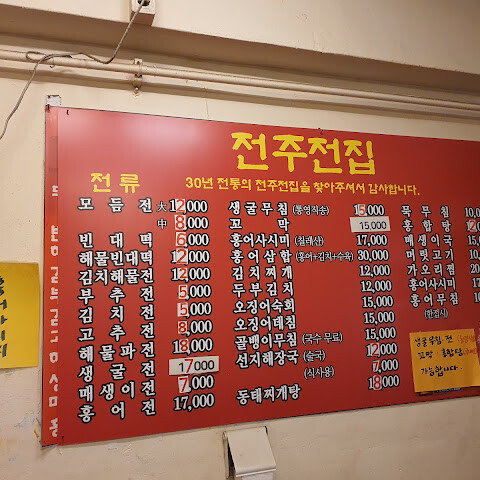 전주전집
30년 전통의 전주전집을 찾아주셔서 감사합니다.
전류
모듬전 大 12,000
中 8,000
빈대떡 6,000
해물빈대떡 12,000
김치해물전 12,000
부추전 5,000
김치전 5,000
고추전 8,000
해물파전 18,000
생굴전 17000
매생이전 7,000
홍어전 17,000
생굴무침 (통영직송) 15,000
꼬막 15,000
홍어사시미 (칠레산) 17,000
홍어삼합 (홍어+김치+수육) 30,000
김치찌개 12,000
두부김치 12,000
오징어숙회 15,000
오징어데침 15,000
골뱅이무침 (국수 무료) 15,000
선지해장국 (술국) 12,000
(식사용) 7,000
동태찌개탕 18,000
묵무침
홍합탕
매생이국
머릿고기
가오리찜
홍어사시미
홍어무침
(한접시)
생굴무침·전
꼬막·홍합탕
가능합니다